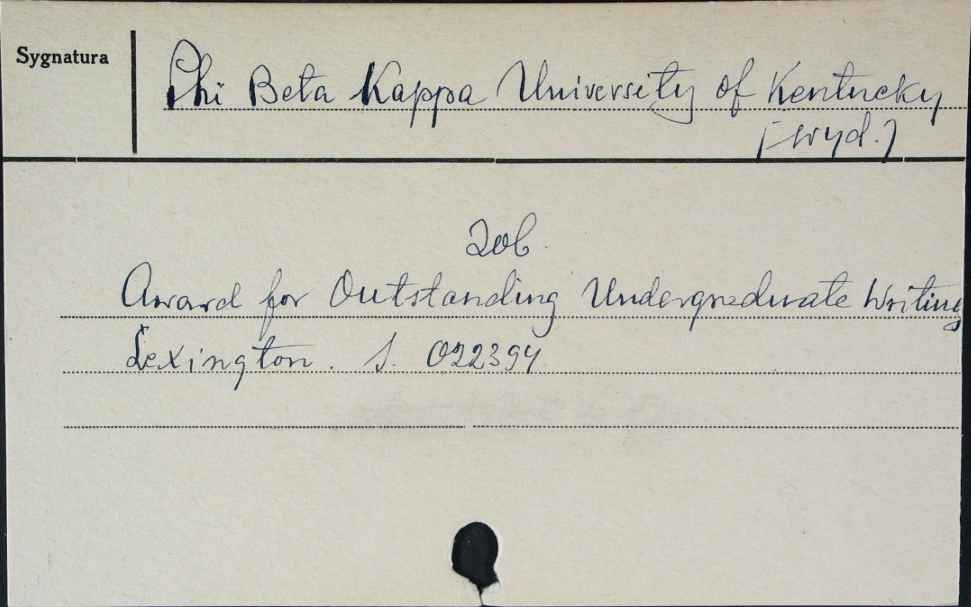 Sygnatura
Phi Beta Kappa University of Kentucky
[wyd.]
Zob.
Award for Outstanding Undergraduate Writing
Lexington. S. 022394